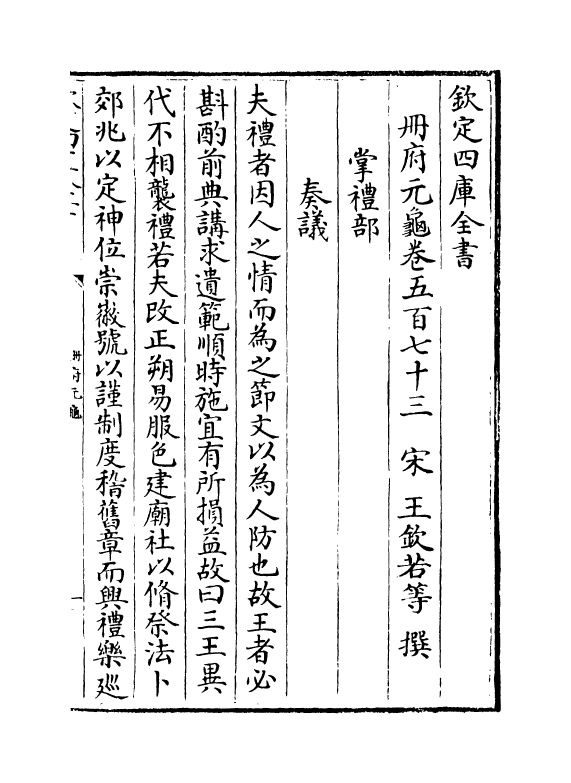 欽定四庫全書
冊府元龜卷五百七十三　宋　王欽若等　撰
掌禮部
奏議
夫禮者因人之情而為之節文以為人防也故王者必
斟酌前典講求遺範順時施宜有所損益故曰三王異
代不相襲禮若夫改正朔易服色建廟社以脩祭法卜
郊兆以定神位崇徽號以謹制度稽舊章而興禮樂巡
冊府元龜
一